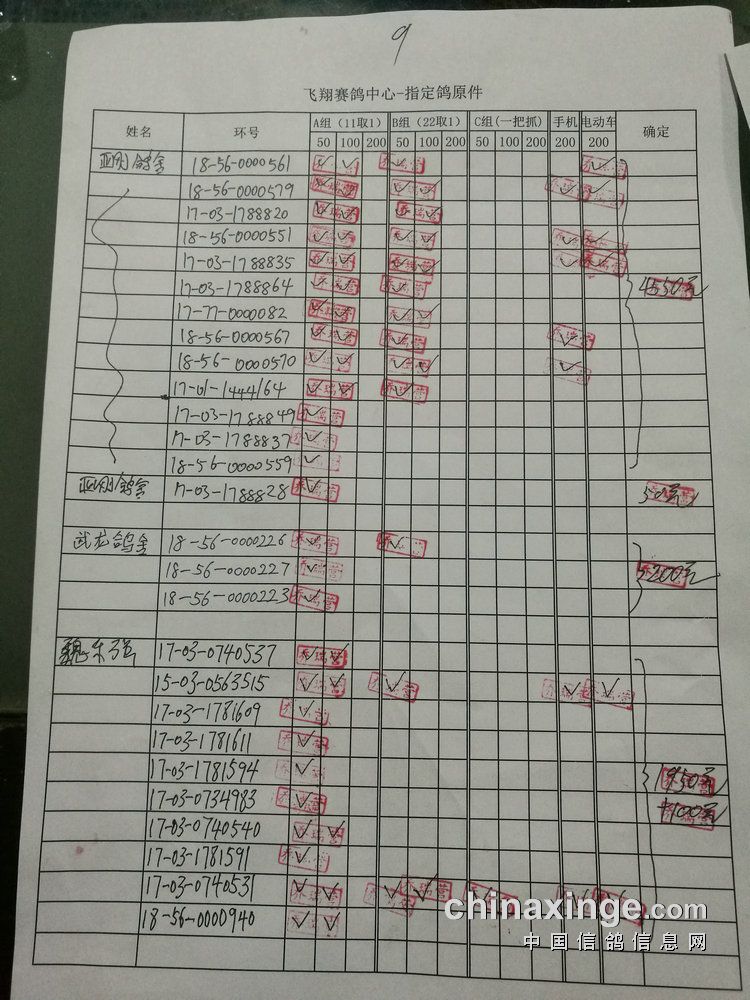 9
飞翔赛鸽中心-指定鸽原件
姓名 环号 A组（11取1） B组（22取1） C组(一把抓) 手机 电动车 确定
50 100 200 50 100 200 50 100 200 200 200
亚刚鸽舍 18-56-0000561 ✓ ✓ ✓ ✓
18-56-0000579 ✓ ✓ ✓ ✓ ✓ ✓
17-03-1788820 ✓ ✓ ✓ ✓
18-56-0000551 ✓ ✓ ✓ ✓ ✓ ✓
17-03-1788835 ✓ ✓ ✓ ✓ ✓ ✓
17-03-1788864 ✓ ✓ ✓ 4550元
17-77-0000082 ✓ ✓ ✓ ✓
18-56-0000567 ✓ ✓ ✓ ✓
18-56-0000570 ✓ ✓ ✓ ✓ ✓
17-01-1444164 ✓ ✓ ✓ ✓
17-03-1788849 ✓
17-03-1788837 ✓
18-56-0000559 ✓
亚刚鸽舍 17-03-1788828 ✓ 50元
武龙鸽舍 18-56-0000226 ✓ ✓
18-56-0000227 ✓ 200元
18-56-0000223 ✓
魏东强 17-03-0740537 ✓ ✓
15-03-0563515 ✓ ✓ ✓ ✓ ✓
17-03-1781609 ✓
17-03-1781611 ✓
17-03-1781594 ✓
17-03-0734983 ✓ +100元
17-03-0740540 ✓ ✓
17-03-1781591 ✓
17-03-0740531 ✓ ✓ ✓ ✓ ✓ ✓ ✓ ✓
18-56-0000940 ✓ ✓
chinaxinge.com
中国信鸽信息网